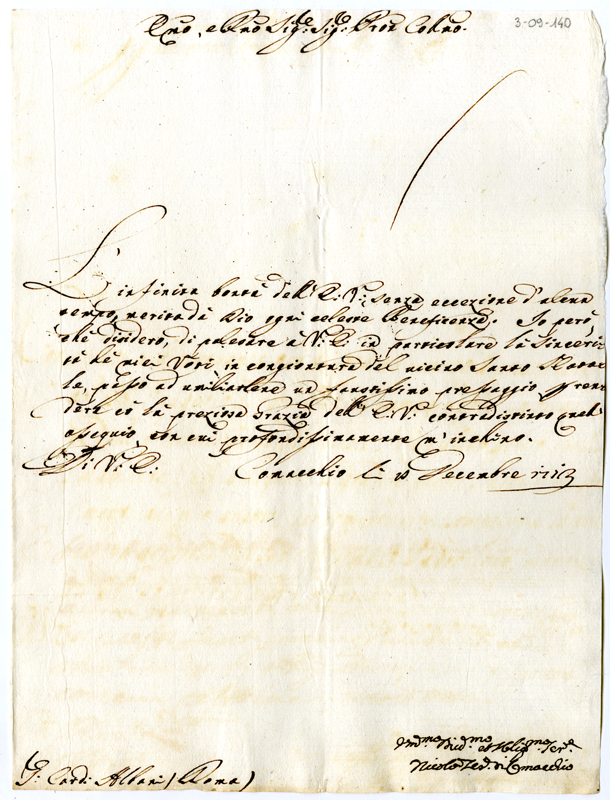 3-09-140
Emo, e Rmo Sigre Sigre Pron Colmo.
L'infinita bontà dell'E: V:, senza eccezione d'alcun
tempo, merita da Dio ogni celeste Beneficenza. Io però,
che desidero, di palesare à V: E: in particolare la sincerità
de miei Voti, in congiontura del vicino Santo Natale,
passo ad umiliarlene un faustissimo presaggio, e
la preziosa grazia dell'E: V: contradistinto quell'
ossequio, con cui profondissimamente m'inchino.
Di V: E:
Comacchio li Decembre
Umo. Divmo. et Obligmo. Serre.
Nicolò di Comacchio
S: Card: Albani (Roma)